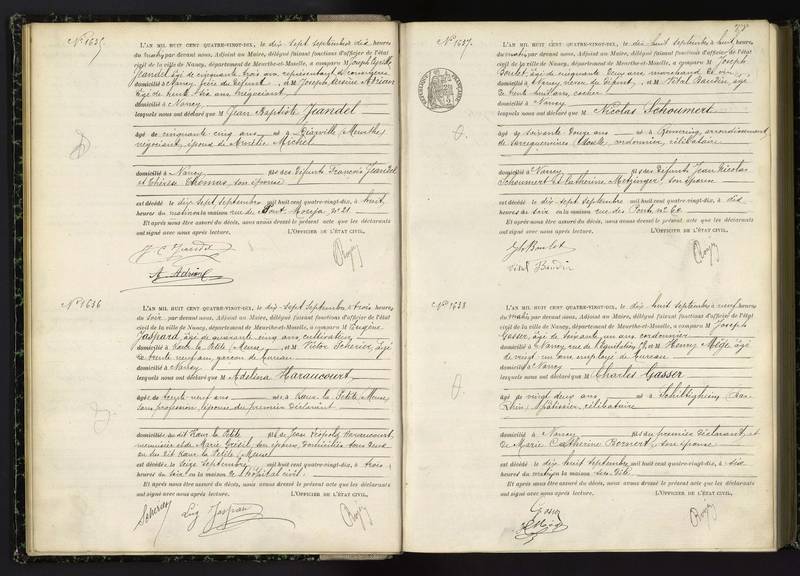 No 1635.
L'AN MIL HUIT CENT QUATRE-VINGT-DIX, le dix sept septembre à dix heures
du matin par devant nous, Adjoint au Maire, délégué faisant fonctions d'officier de l'état
civil de la ville de Nancy, département de Meurthe-et-Moselle, a comparu M Joseph
Jeandel, âgé de cinquante trois ans, représentant de commerce
domicilié à Nancy, frère du défunt, et M Joseph Adrian
âgé de trente six ans, négociant
domicilié à Nancy
lesquels nous ont déclaré que M Jean Baptiste Jeandel
âgé de cinquante cinq ans né à (Meurthe)
négociant, époux de Amélie Michel
domicilié à Nancy fils des défunts François Jeandel
et Thérèse Thomas, son épouse
est décédé le dix sept septembre mil huit cent quatre-vingt-dix, à huit
heures du matin en la maison rue du Pont Mouja no 21
Et après nous être assuré du décès, nous avons dressé le présent acte que les déclarants
ont signé avec nous après lecture. L'OFFICIER DE L'ÉTAT CIVIL,
Jeandel
A. Adrian
No 1636
L'AN MIL HUIT CENT QUATRE-VINGT-DIX, le dix sept septembre à trois heures
du soir par devant nous, Adjoint au Maire, délégué faisant fonctions d'officier de l'état
civil de la ville de Nancy, département de Meurthe-et-Moselle, a comparu M Eugène
Jaspard, âgé de quarante cinq ans, cultivateur
domicilié à Raon la Petite, Meuse, et M Victor Scherier, âgé
de trente neuf ans, garçon de bureau
domicilié à Nancy
lesquels nous ont déclaré que M Adelina Haraucourt
âgée de trente neuf ans née à la Petite, Meuse
sans profession, épouse du premier déclarant
domiciliée au dit la Petite fille de Jean Léopold Haraucourt,
menuisier et de Marie son épouse, domiciliés tous deux
au dit la Petite, Meuse
est décédée le seize septembre mil huit cent quatre-vingt-dix, à trois
heures du soir en la maison de l'hôpital civil.
Et après nous être assuré du décès, nous avons dressé le présent acte que les déclarants
ont signé avec nous après lecture. L'OFFICIER DE L'ÉTAT CIVIL,
No 1637.
L'AN MIL HUIT CENT QUATRE-VINGT-DIX, le dix huit septembre à huit heures
du matin par devant nous, Adjoint au Maire, délégué faisant fonctions d'officier de l'état
civil de la ville de Nancy, département de Meurthe-et-Moselle, a comparu M Joseph
Boulet, âgé de cinquante deux ans marchand de vin
domicilié à Nancy, du défunt, et M Vital Baudin, âgé
de trente huit ans, cocher
domicilié à Nancy
lesquels nous ont déclaré que M Nicolas Schoumert
âgé de soixante douze ans né à Rémering, arrondissement
de Sarreguemines (Moselle) cordonnier, célibataire
domicilié à Nancy fils des défunts Jean Nicolas
Schoumert et Catherine Metzinger, son épouse
est décédé le dix sept septembre mil huit cent quatre-vingt-dix, à dix
heures du soir en la maison rue des Ponts no 60
Et après nous être assuré du décès, nous avons dressé le présent acte que les déclarants
ont signé avec nous après lecture. L'OFFICIER DE L'ÉTAT CIVIL,
Boulet
Vital Baudin
No 1638
L'AN MIL HUIT CENT QUATRE-VINGT-DIX, le dix huit septembre à neuf heures
du matin par devant nous, Adjoint au Maire, délégué faisant fonctions d'officier de l'état
civil de la ville de Nancy, département de Meurthe-et-Moselle, a comparu M Joseph
Gasser, âgé de soixante un ans cordonnier
domicilié à Nancy, rue de l'Equitation et M Henry Mège âgé
de vingt un ans employé de bureau
domicilié à Nancy
lesquels nous ont déclaré que M Charles Gasser
âgé de vingt deux ans né à Schiltigheim (Bas-
Rhin) pâtissier, célibataire
domicilié à Nancy fils du premier déclarant, et
de Marie Catherine Bornert, son épouse
est décédé le dix huit septembre mil huit cent quatre-vingt-dix, à six
heures du matin en la maison
Et après nous être assuré du décès, nous avons dressé le présent acte que les déclarants
ont signé avec nous après lecture. L'OFFICIER DE L'ÉTAT CIVIL,
Gasser
H. Mège